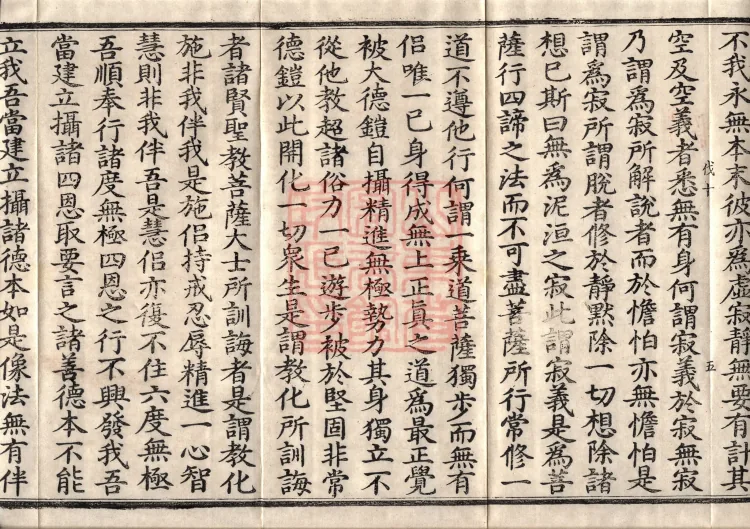 不我永無本末彼亦為虛寂靜無要有計其
空及空義者悉無有身何謂寂義於寂無寂
乃謂為寂所解說者而於憺怕亦無憺怕是
謂為寂所謂脫者修於靜默除一切想除諸
想已斯曰無為泥洹之寂此謂寂義是為菩
薩行四諦之法而不可盡菩薩所行常修一
伐十
五
道不遵他行何謂一乘道菩薩獨步而無有
侶唯一己身得成無上正真之道為最正覺
被大德鎧自攝精進無極勢力其身獨立不
從他教超諸俗力一己遊步被於堅固非常
德鎧以此開化一切眾生是謂教化所訓誨
者諸賢聖教菩薩大士所訓誨者是謂教化
施非我伴我是施侶持戒忍辱精進一心智
慧則非我伴吾是慧侶亦復不住六度無極
吾順奉行諸度無極四恩之行不興發我吾
當建立攝諸四恩取要言之諸善德本不能
立我吾當建立攝諸德本如是像法無有伴